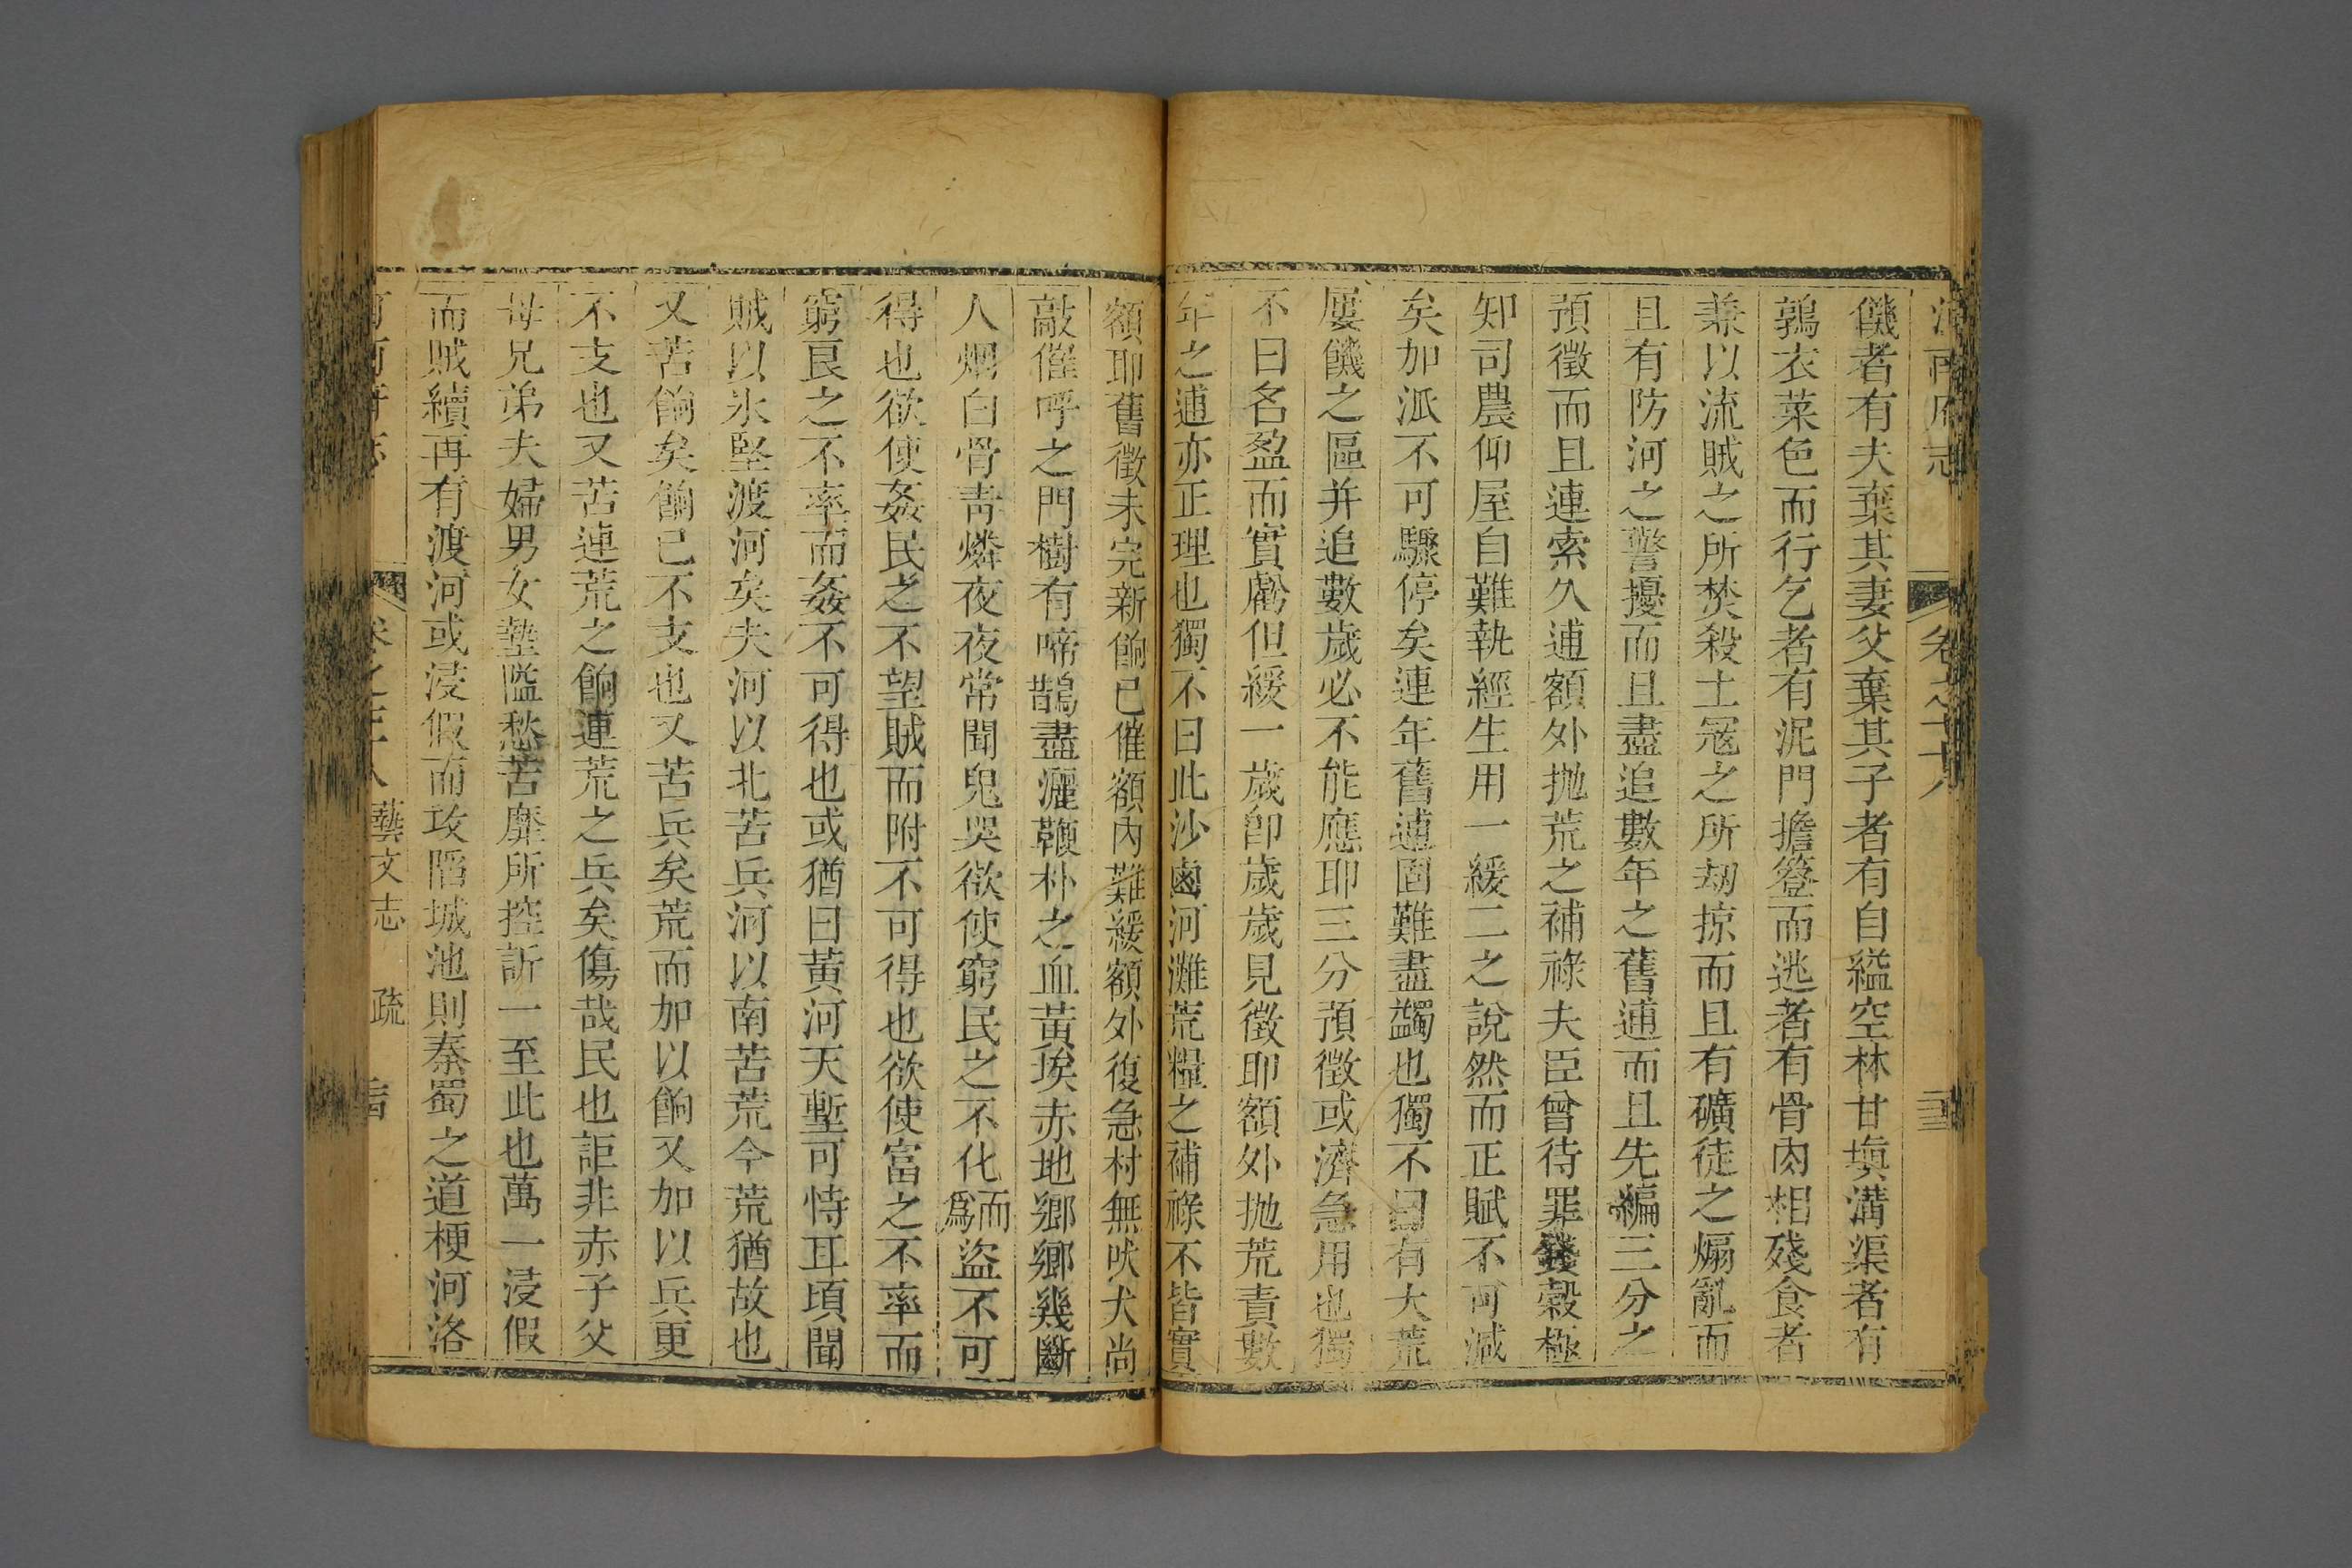 河南府志 卷之
饑者有夫棄其妻父棄其子者有自縊空林甘塡溝渠者有
鶉衣菜色而行乞者有泥門擔簦而逃者有骨肉相殘食者
兼以流賊之所焚殺土冦之所刼掠而且有礦徒之煽亂而
且有防河之警擾而且盡追數年之舊逋而且先編三分之
預徵而且連索久逋額外抛荒之補祿夫臣曾待罪錢穀極
知司農仰屋自難執經生用一緩二之說然而正賦不可減
矣加派不可驟停矣連年舊逋固難盡蠲也獨不曰有大荒
屢饑之區并追數歲必不能應耶三分預徵或濟急用也獨
不曰名盈而實虧但緩一歲卽歲歲見徵耶額外抛荒責數
年之逋亦正理也獨不曰此沙鹵河灘荒糧之補祿不皆實
額耶舊徵未完新餉已催額內難緩額外復急村無吠犬尚
敲催呼之門樹有啼鵲盡灑鞭朴之血黃埃赤地鄉鄉幾斷
人烟白骨靑燐夜夜常聞鬼哭欲使窮民之不化而爲盜不可
得也欲使姦民之不望賊而附不可得也欲使富之不率而
窮良之不率而姦不可得也或猶曰黃河天塹可恃耳頃聞
賊以氷堅渡河矣夫河以北苦兵河以南苦荒今荒猶故也
又苦餉矣餉已不支也又苦兵矣荒而加以餉又加以兵更
不支也又苦連荒之餉連荒之兵矣傷哉民也詎非赤子父
母兄弟夫婦男女墊隘愁苦靡所控訴一至此也萬一浸假
而賊續再有渡河或浸假而攻陷城池則秦蜀之道梗河洛
藝文志 疏